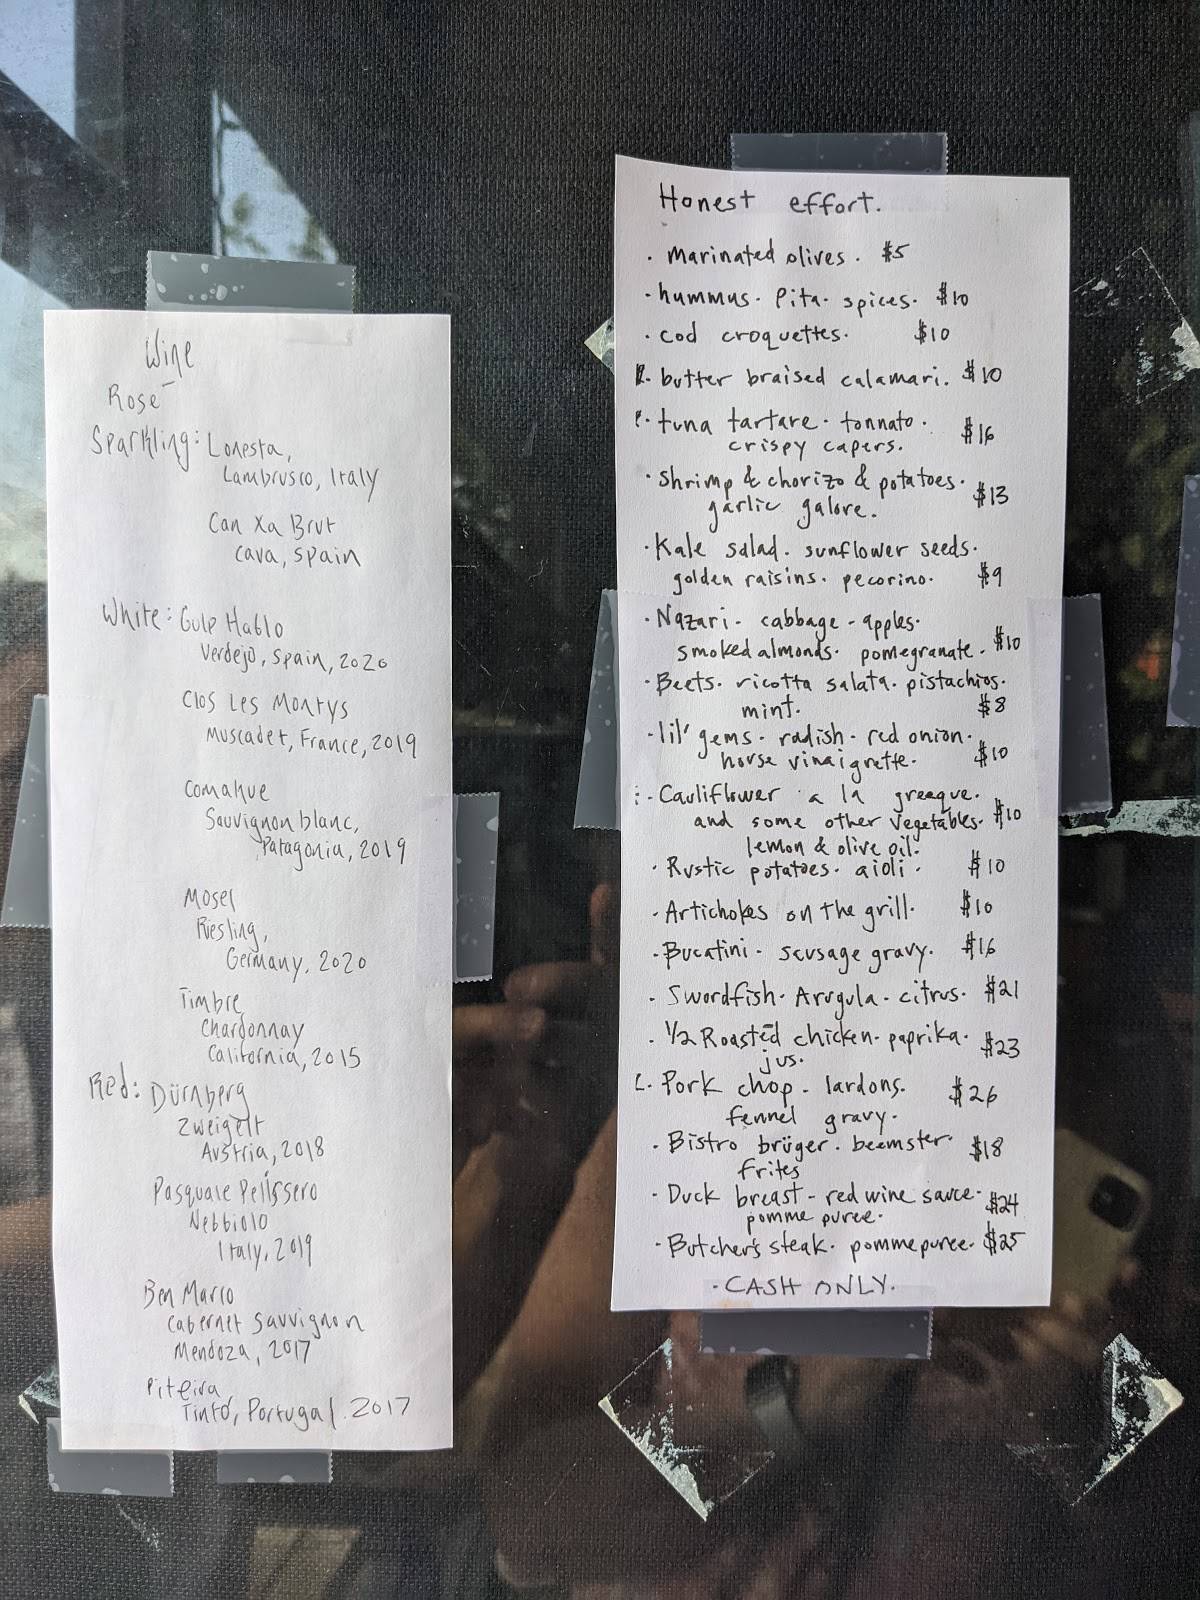 Wine
Rosé
Sparkling: Lonesta,
Lambrusco, Italy
Can Xa Brut
Cava, Spain
White: Gulp Hablo
Verdejo, Spain, 2020
Clos Les Montys
Muscadet, France, 2019
Comahue
Sauvignon blanc,
Patagonia, 2019
Mosel
Riesling,
Germany, 2020
Timbre
Chardonnay
California, 2015
Red: Dürnberg
Zweigelt
Austria, 2018
Pasquale Pelissero
Nebbiolo
Italy, 2019
Ben Marco
Cabernet Sauvignon
Mendoza, 2017
Piteira
Tinto, Portugal. 2017
Honest effort.
· marinated olives. $5
· hummus. Pita. spices. $10
· cod croquettes. $10
· butter braised calamari. $10
· tuna tartare. tonnato.
crispy capers. $16
· Shrimp & chorizo & potatoes.
garlic galore. $13
· Kale salad. sunflower seeds.
golden raisins. pecorino. $9
· Nazari - cabbage - apples.
smoked almonds. pomegranate. $10
· Beets. ricotta salata. pistachios.
mint. $8
· lil' gems. radish. red onion.
horse vinaigrette. $10
· Cauliflower a la greaque.
and some other vegetables. $10
lemon & olive oil.
· Rustic potatoes. aioli. $10
· Artichokes on the grill. $10
· Bucatini - sausage gravy. $16
· Swordfish. Arugula. citrus. $21
· 1/2 Roasted chicken. paprika.
jus. $23
· Pork chop. lardons.
fennel gravy. $26
· Bistro brüger. beemster.
frites $18
· Duck breast - red wine sauce.
pomme puree. $24
· Butcher's steak. pomme puree. $25
· CASH ONLY.